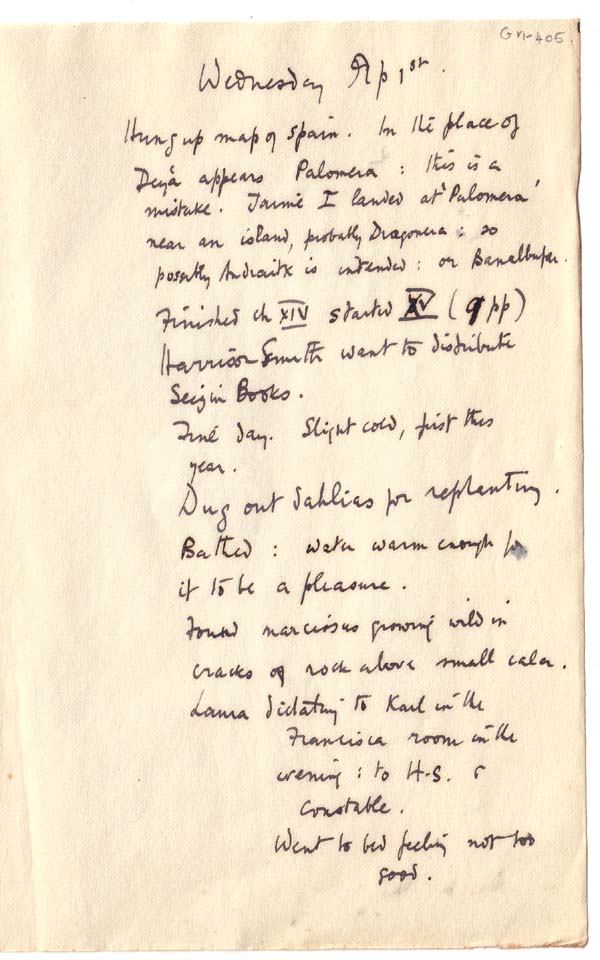 GVI-405.
Wednesday Ap 1st.
Hung up map of Spain. In the place of
Deyá appears Palomera : this is a
mistake. Jaume I landed at 'Palomera'
near an island, probably Dragonera : so
possibly Andraitx is intended : or Banalbufar.
Finished ch XIV started XV (9 pp)
Harrison Smith want to distribute
Seizin Books.
Fine day. Slight cold, first this
year.
Dug out dahlias for replanting.
Bathed : water warm enough for
it to be a pleasure.
Found narcissus growing wild in
cracks of rock above small cala.
Laura dictating to Karl in the
Francisca room in the
evening : to H-S. &
Constable.
Went to bed feeling not too
good.